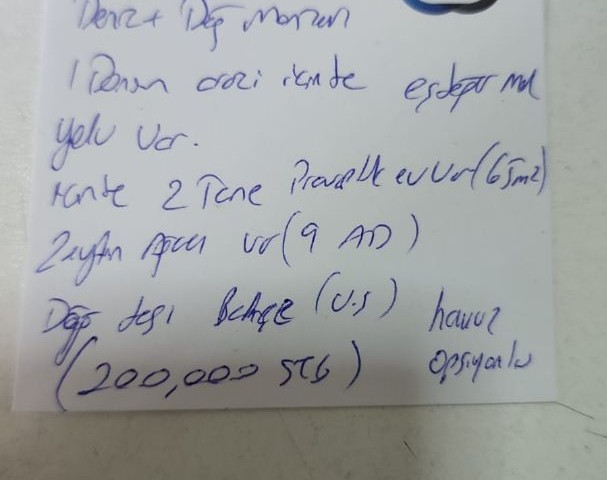 Deniz + Dağ Manzara
1 Dönüm arazi içinde eşdeğer mal
yolu var.
içinde 2 Tane Prefabik ev var (65m2)
Zeytin Ağacı var (9 AD)
Doğa taşı Bahçe (v.s) havuz
opsiyonlu
(200,000 STG)